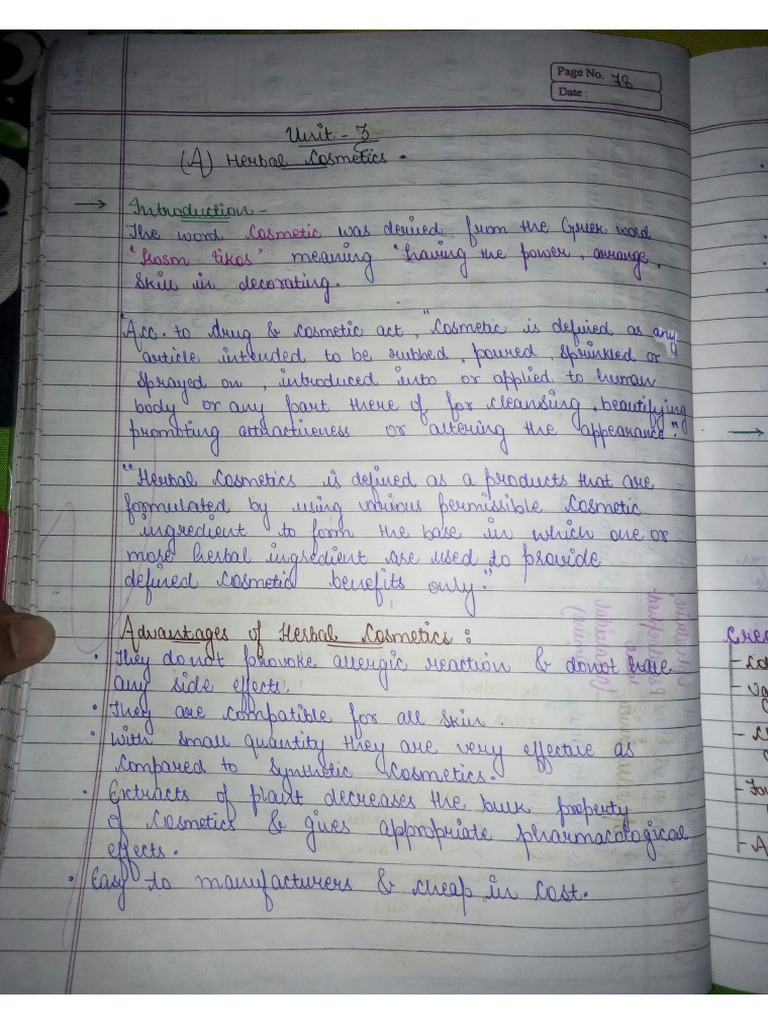 Page No. 78
Date :
Unit - 3
(A) Herbal Cosmetics.
→ Introduction -
The word Cosmetic was derived from the Greek word
"kosm tikos" meaning "having the power, arrange,
skill in decorating.
"Acc. to drug & cosmetic act, "Cosmetic is defined as any
article intended to be rubbed, poured, sprinkled or
sprayed on, introduced into or applied to human
body or any part there of for cleansing, beautifying
promoting attractiveness or altering the appearance."
"Herbal Cosmetics is defined as a products that are
formulated by using various permissible cosmetic
ingredient to form the base in which one or
more herbal ingredient are used to provide
defined cosmetic benefits only."
Advantages of Herbal Cosmetics :
• They do not provoke allergic reaction & donot have
any side effects.
• They are compatible for all skin.
• With small quantity they are very effective as
compared to synthetic cosmetics.
• Extracts of plant decreases the bulk property
of cosmetics & gives appropriate pharmacological
effects.
• Easy to manufacturers & cheap in cost.